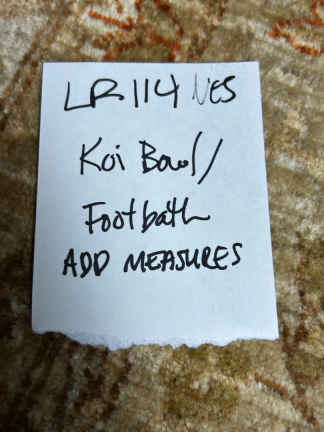 LR114 NES
Koi Bowl/
Footbath
ADD MEASURES